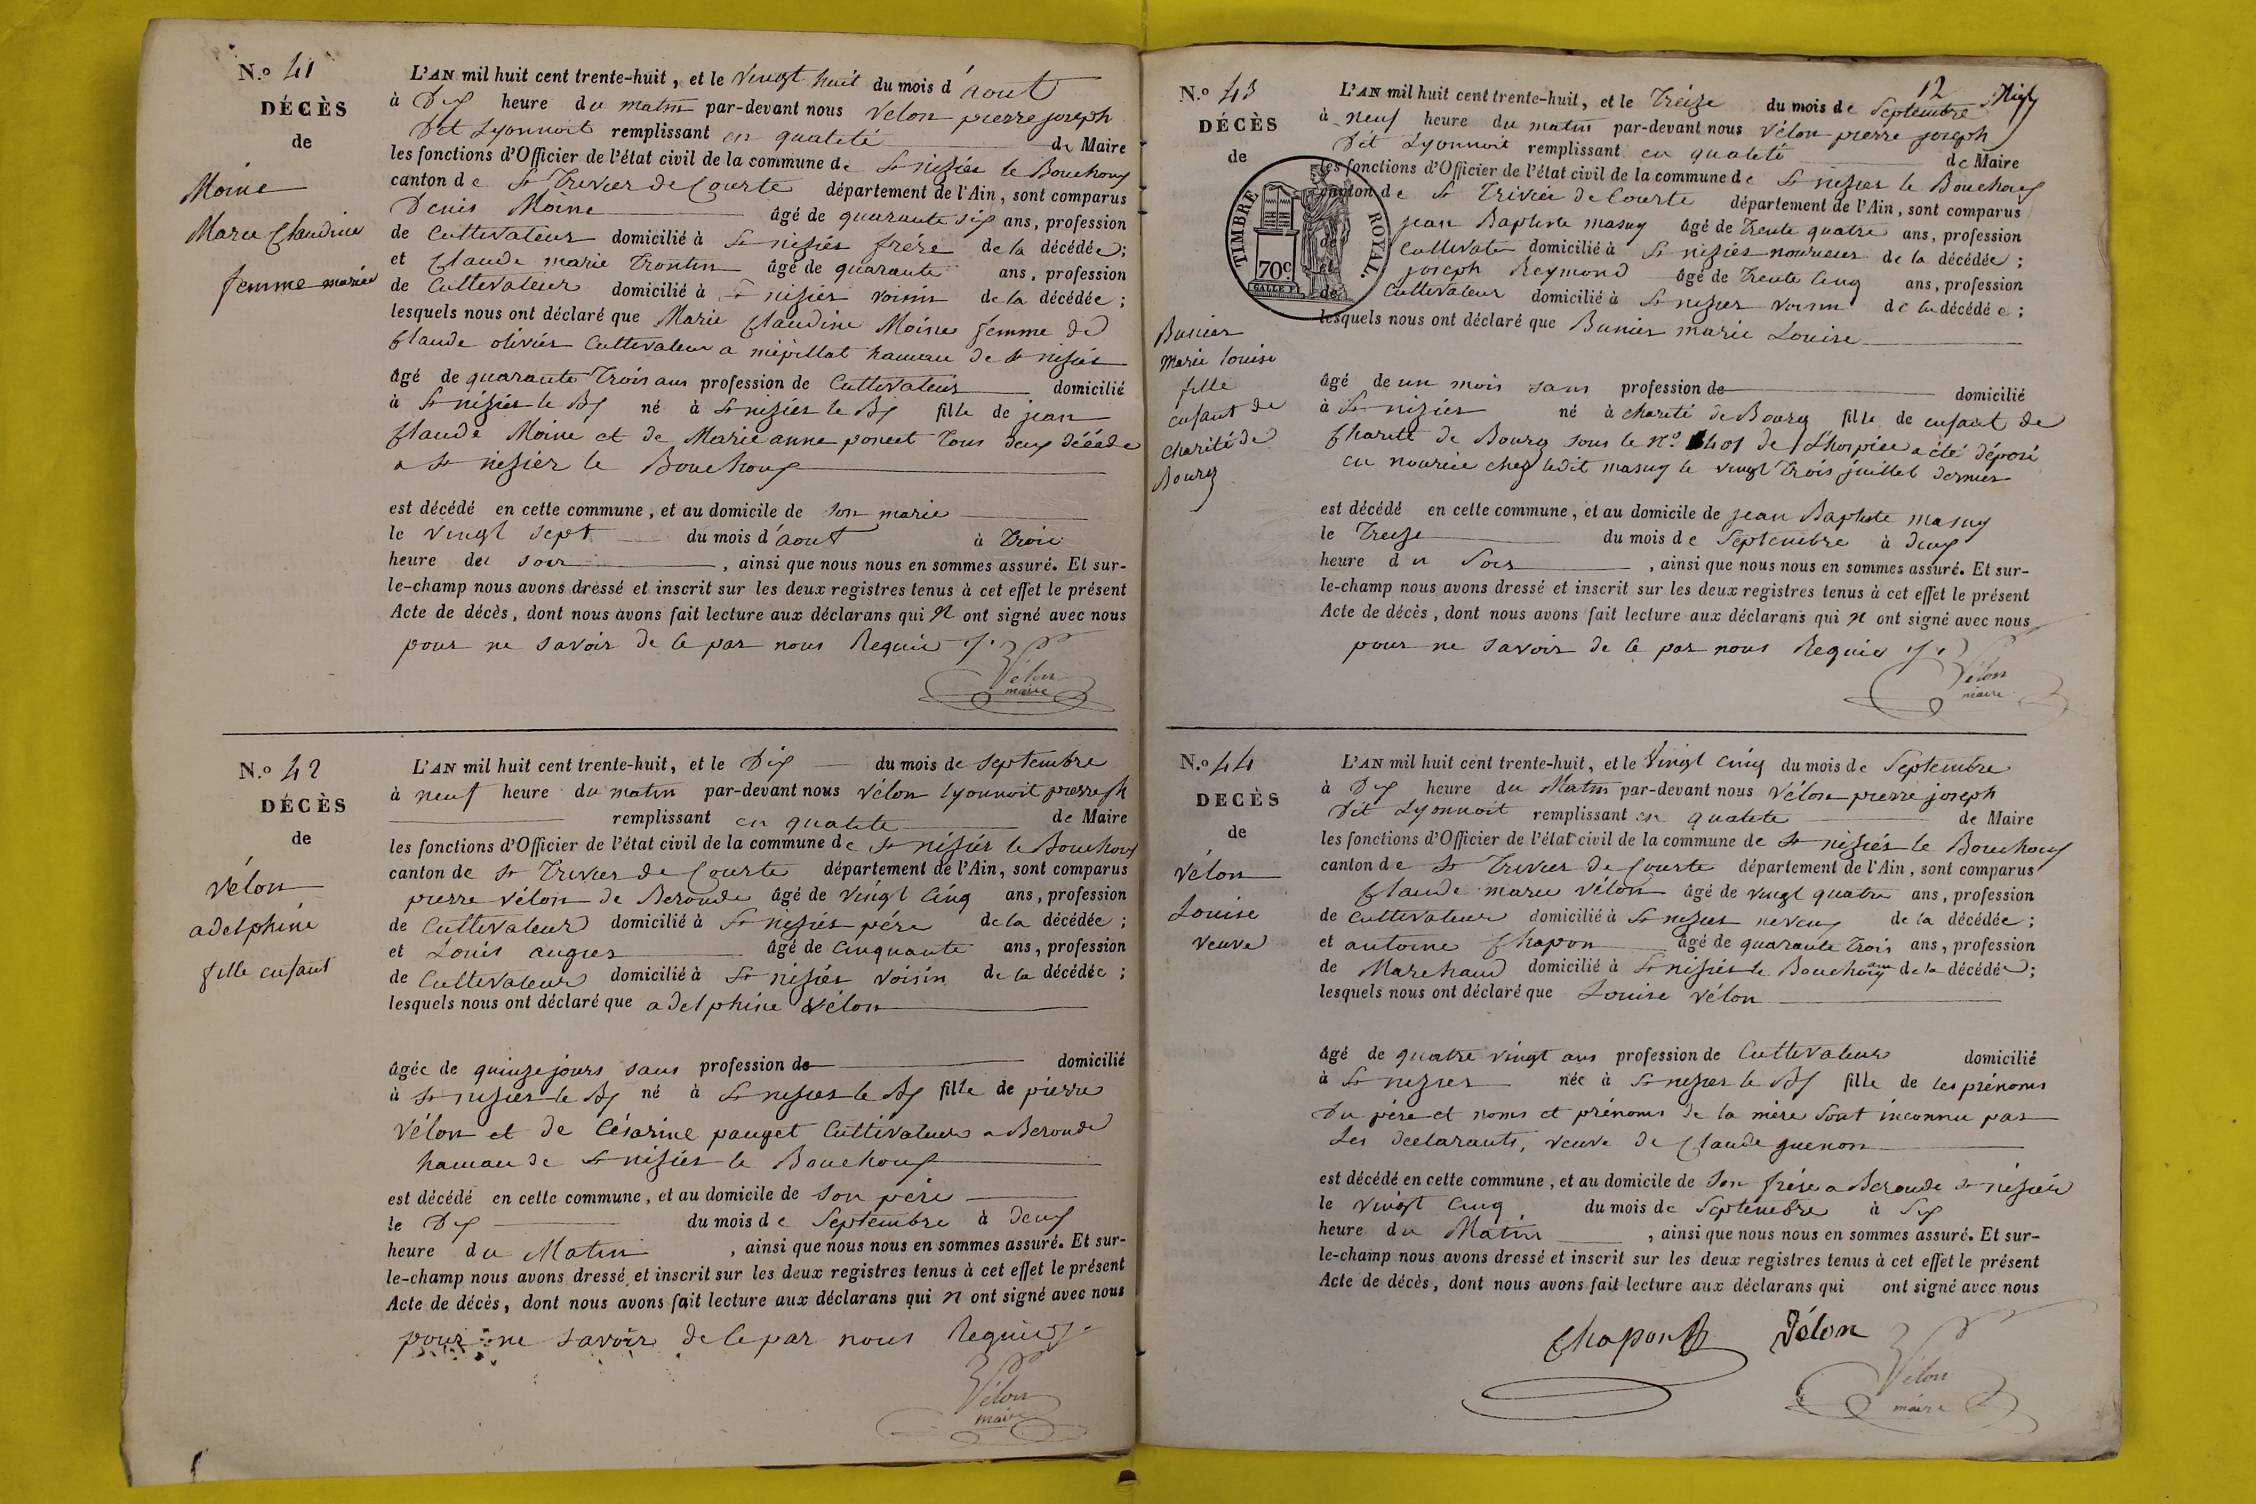 N.o 41
DÉCÈS
de
Moine
Marie Claudine
femme mariée
L'AN mil huit cent trente-huit, et le vingt huit du mois d'aout
à Dix heure du matin par-devant nous Vélon pierre joseph
Dit Lyonnoit remplissant en qualité de Maire
les fonctions d'Officier de l'état civil de la commune de St nizier le Bouchoux
canton de St Trivier de Courte département de l'Ain, sont comparus
Denis Moine âgé de quarante six ans, profession
de Cultivateur domicilié à St nizier frére de la décédée;
et Claude marie Trontin âgé de quarante ans, profession
de Cultivateur domicilié à St nizier voisin de la décédée;
lesquels nous ont déclaré que Marie Claudine Moine femme de
Claude olivier Cultivateur a mépillat hameau de St nizier
âgé de quarante Trois ans profession de Cultivateur domicilié
à St nizier le Bx né à St nizier le Bx fille de jean
Claude Moine et de Marie anne poncet Tous deux décédé
a St nizier le Bouchoux
est décédé en cette commune, et au domicile de son marie
le vingt sept du mois d'aout à Trois
heure du soir, ainsi que nous nous en sommes assuré. Et sur-
le-champ nous avons dressé et inscrit sur les deux registres tenus à cet effet le présent
Acte de décès, dont nous avons fait lecture aux déclarans qui n ont signé avec nous
pour ne savoir de ce par nous Requis
Vélon
maire
N.o 42
DÉCÈS
de
vélon
adelphine
fille enfant
L'AN mil huit cent trente-huit, et le Dix du mois de septembre
à neuf heure du matin par-devant nous vélon Lyonnoit pierre jh
remplissant en qualité de Maire
les fonctions d'Officier de l'état civil de la commune de St nizier le Bouchoux
canton de St Trivier de Courte département de l'Ain, sont comparus
pierre vélon de Beronde âgé de vingt Cinq ans, profession
de Cultivateur domicilié à St nizier pére de la décédée;
et Louis âgé de Cinquante ans, profession
de Cultivateur domicilié à St nizier voisin de la décédée;
lesquels nous ont déclaré que adelphine vélon
âgée de quinze jours sans profession de domicilié
à St nizier le Bx né à St nizier le Bx fille de pierre
vélon et de Césarine pauget Cultivateur a Beronde
hameau de St nizier le Bouchoux
est décédé en cette commune, et au domicile de son pére
le Dix du mois de Septembre à deux
heure du Matin, ainsi que nous nous en sommes assuré. Et sur-
le-champ nous avons dressé et inscrit sur les deux registres tenus à cet effet le présent
Acte de décès, dont nous avons fait lecture aux déclarans qui n ont signé avec nous
pour ne savoir de ce par nous Requis
Vélon
maire
12
N.o 43
DÉCÈS
de
TIMBRE ROYAL.
70c
Bunier
Marie louise
fille
enfant de
charité de
Bourg
L'AN mil huit cent trente-huit, et le Treize du mois de Septembre
à neuf heure du matin par-devant nous Vélon pierre joseph
Dit Lyonnoit remplissant en qualité de Maire
les fonctions d'Officier de l'état civil de la commune de St nizier le Bouchoux
canton de St Trivier de Courte département de l'Ain, sont comparus
jean Baptiste masuy âgé de Trente quatre ans, profession
de Cultivateur domicilié à St nizier nourieur de la décédée;
et joseph Reymond âgé de Trente Cinq ans, profession
de Cultivateur domicilié à St nizier voisin de la décédée;
lesquels nous ont déclaré que Bunier marie Louise
âgé de un mois sans profession de domicilié
à St nizier né à charité de Bourg fille de enfant de
Charité de Bourg sous le No. de L'hospice a été déposé
en nourice chez ledit masuy le vingt Trois juillet dernier
est décédé en cette commune, et au domicile de jean Baptiste masuy
le Treize du mois de Septembre à deux
heure du Soir, ainsi que nous nous en sommes assuré. Et sur-
le-champ nous avons dressé et inscrit sur les deux registres tenus à cet effet le présent
Acte de décès, dont nous avons fait lecture aux déclarans qui n ont signé avec nous
pour ne savoir de ce par nous Requis
Vélon
maire
N.o 44
DECÈS
de
vélon
Louise
veuve
L'AN mil huit cent trente-huit, et le Vingt Cinq du mois de Septembre
à Dix heure du Matin par-devant nous Vélon pierre joseph
Dit Lyonnoit remplissant en qualité de Maire
les fonctions d'Officier de l'état civil de la commune de St nizier le Bouchoux
canton de St Trivier de Courte département de l'Ain, sont comparus
Claude marie vélon âgé de vingt quatre ans, profession
de Cultivateur domicilié à St nizier neveux de la décédée;
et antoine Chapon âgé de quarante Trois ans, profession
de Marchand domicilié à St nizier le Bouchoux ami de la décédée;
lesquels nous ont déclaré que Louise vélon
âgé de quatre vingt ans profession de Cultivateur domicilié
à St nizier née à St nizier le Bx fille de les prénoms
Du pére et noms et prénoms de la mére Sont inconnu par
Les declarants, veuve de Claude guenon
est décédé en cette commune, et au domicile de Son frére a Beronde St nizier
le vingt Cinq du mois de Septembre à Six
heure du Matin, ainsi que nous nous en sommes assuré. Et sur-
le-champ nous avons dressé et inscrit sur les deux registres tenus à cet effet le présent
Acte de décès, dont nous avons fait lecture aux déclarans qui ont signé avec nous
Chapon Vélon
Vélon
maire